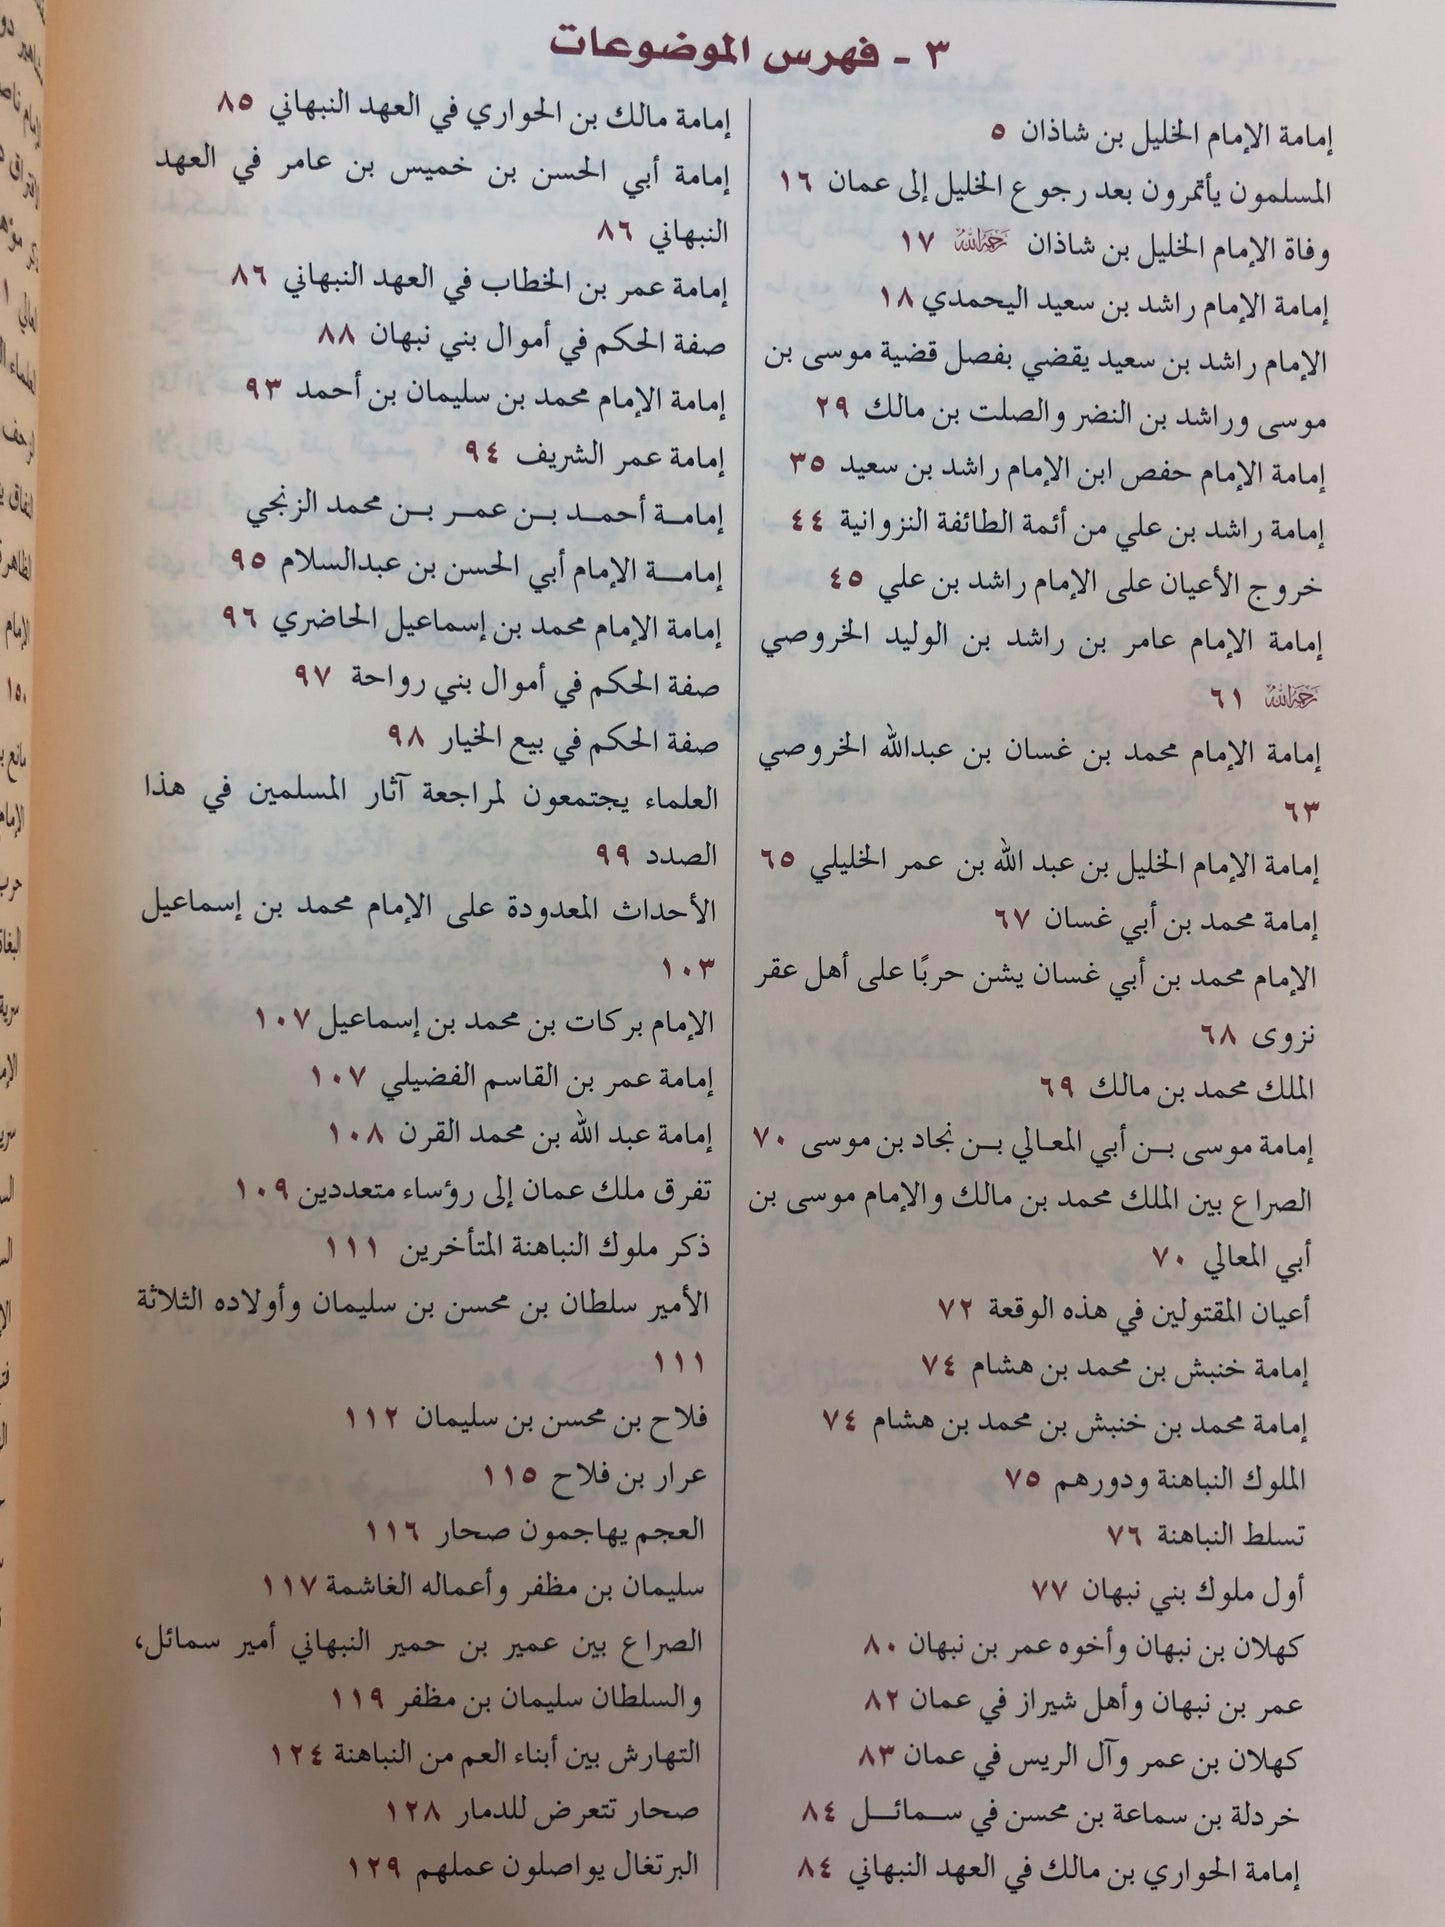 ٣ - فهرس الموضوعات
إمامة الإمام الخليل بن شاذان ٥
المسلمون يأتمرون بعد رجوع الخليل إلى عمان ١٦
وفاة الإمام الخليل بن شاذان رَحِمَهُ اللهُ ١٧
إمامة الإمام راشد بن سعيد اليحمدي ١٨
الإمام راشد بن سعيد يقضي بفصل قضية موسى بن
موسى وراشد بن النضر والصلت بن مالك ٢٩
إمامة الإمام حفص ابن الإمام راشد بن سعيد ٣٥
إمامة راشد بن علي من أئمة الطائفة النزوانية ٤٤
خروج الأعيان على الإمام راشد بن علي ٤٥
إمامة الإمام عامر بن راشد بن الوليد الخروصي
رَحِمَهُ اللهُ ٦١
إمامة الإمام محمد بن غسان بن عبدالله الخروصي
٦٣
إمامة الإمام الخليل بن عبد الله بن عمر الخليلي ٦٥
إمامة محمد بن أبي غسان ٦٧
الإمام محمد بن أبي غسان يشن حربًا على أهل عقر
نزوى ٦٨
الملك محمد بن مالك ٦٩
إمامة موسى بن أبي المعالي بن نجاد بن موسى ٧٠
الصراع بين الملك محمد بن مالك والإمام موسى بن
أبي المعالي ٧٠
أعيان المقتولين في هذه الوقعة ٧٢
إمامة خنبش بن محمد بن هشام ٧٤
إمامة محمد بن خنبش بن محمد بن هشام ٧٤
الملوك النباهنة ودورهم ٧٥
تسلط النباهنة ٧٦
أول ملوك بني نبهان ٧٧
كهلان بن نبهان وأخوه عمر بن نبهان ٨٠
عمر بن نبهان وأهل شيراز في عمان ٨٢
كهلان بن عمر وآل الريس في عمان ٨٣
خردلة بن سماعة بن محسن في سمائل ٨٤
إمامة الحواري بن مالك في العهد النبهاني ٨٤
إمامة مالك بن الحواري في العهد النبهاني ٨٥
إمامة أبي الحسن بن خميس بن عامر في العهد
النبهاني ٨٦
إمامة عمر بن الخطاب في العهد النبهاني ٨٦
صفة الحكم في أموال بني نبهان ٨٨
إمامة الإمام محمد بن سليمان بن أحمد ٩٣
إمامة عمر الشريف ٩٤
إمامة أحمد بن عمر بن محمد الزنجي
إمامة الإمام أبي الحسن بن عبدالسلام ٩٥
إمامة الإمام محمد بن إسماعيل الحاضري ٩٦
صفة الحكم في أموال بني رواحة ٩٧
صفة الحكم في بيع الخيار ٩٨
العلماء يجتمعون لمراجعة آثار المسلمين في هذا
الصدد ٩٩
الأحداث المعدودة على الإمام محمد بن إسماعيل
١٠٣
الإمام بركات بن محمد بن إسماعيل ١٠٧
إمامة عمر بن القاسم الفضيلي ١٠٧
إمامة عبد الله بن محمد القرن ١٠٨
تفرق ملك عمان إلى رؤساء متعددين ١٠٩
ذكر ملوك النباهنة المتأخرين ١١١
الأمير سلطان بن محسن بن سليمان وأولاده الثلاثة
١١١
فلاح بن محسن بن سليمان ١١٢
عرار بن فلاح ١١٥
العجم يهاجمون صحار ١١٦
سليمان بن مظفر وأعماله الغاشمة ١١٧
الصراع بين عمير بن حمير النبهاني أمير سمائل،
والسلطان سليمان بن مظفر ١١٩
التهارش بين أبناء العم من النباهنة ١٢٤
صحار تتعرض للدمار ١٢٨
البرتغال يواصلون عملهم ١٢٩